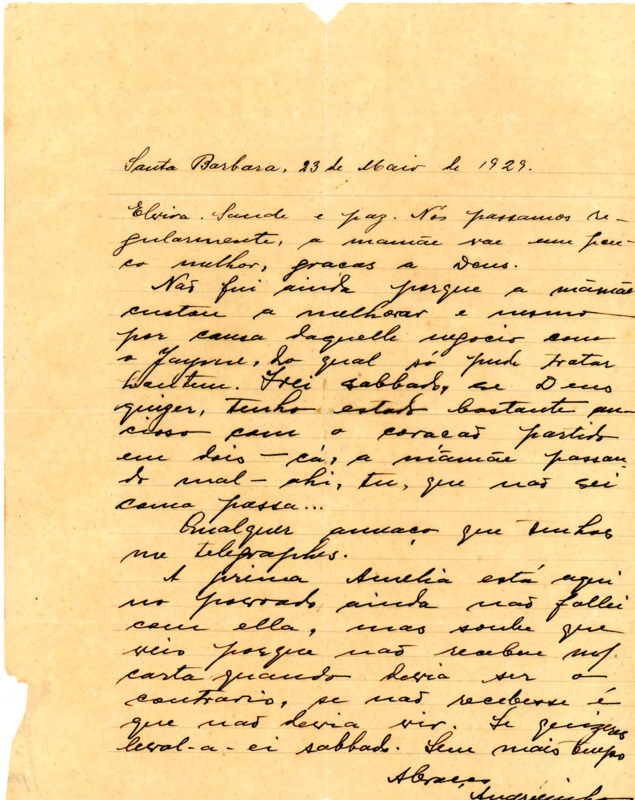 Santa Barbara, 23 de Maio de 1929.
Elvira. Saude e paz. Nós passamos re-
gularmente, a mamãe vae um pou-
co melhor, graças a Deus.
Não fui ainda porque a mamãe
custou a melhorar e mesmo
por causa daquelle negocio com
o Jayme, do qual só pude tratar
hontem. Irei sabbado, se Deus
quizer, tenho estado bastante an-
cioso com o coração partido
em dois - cá, a mamãe passan-
do mal - ahi, tu, que não sei
como passa...
Qualquer que tenhas
me telegraphes.
A prima Amelia está aqui
no povoado, ainda não fallei
com ella, mas soube que
veio porque não recebeu
carta quando devia ser o
contrario, se não recebesse é
que não devia vir. Se quizeres
leval-a-ei sabbado. Sem mais tempo
Abraços